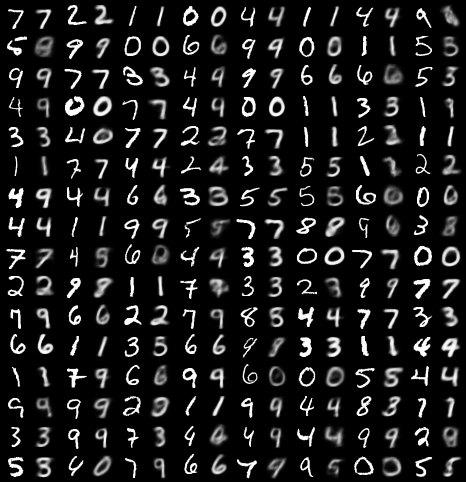 7 7 2 2 1 1 0 0 4 4 1 1 4 4 9
5 9 9 0 0 6 6 9 9 0 0 1 1 5 5
9 9 7 7 3 3 4 9 9 9 6 6 6 5 3
4 9 0 0 7 7 4 9 0 0 1 1 3 3 1 1
3 3 4 0 7 7 2 2 7 7 1 1 2 1 1
1 1 7 7 4 4 2 4 3 3 5 5 1 2 2
4 9 4 4 6 6 3 3 5 5 5 5 6 0 0 0
4 4 1 1 9 9 5 5 7 7 8 8 9 3 8
7 7 4 5 6 0 4 9 3 3 0 0 7 7 0 0
2 2 9 8 1 1 7 3 3 2 3 9 9 7 7
7 9 6 6 2 2 7 9 8 5 4 4 7 7 3 3
6 6 1 1 3 5 6 6 9 8 3 3 1 1 4 4
1 1 7 9 6 6 9 9 6 0 0 0 5 5 4 4
9 9 9 9 2 1 1 9 9 4 4 8 3 7 7
3 3 9 9 7 3 4 4 9 4 4 9 9 2
5 3 4 0 7 9 6 6 7 9 9 5 0 0 5 5